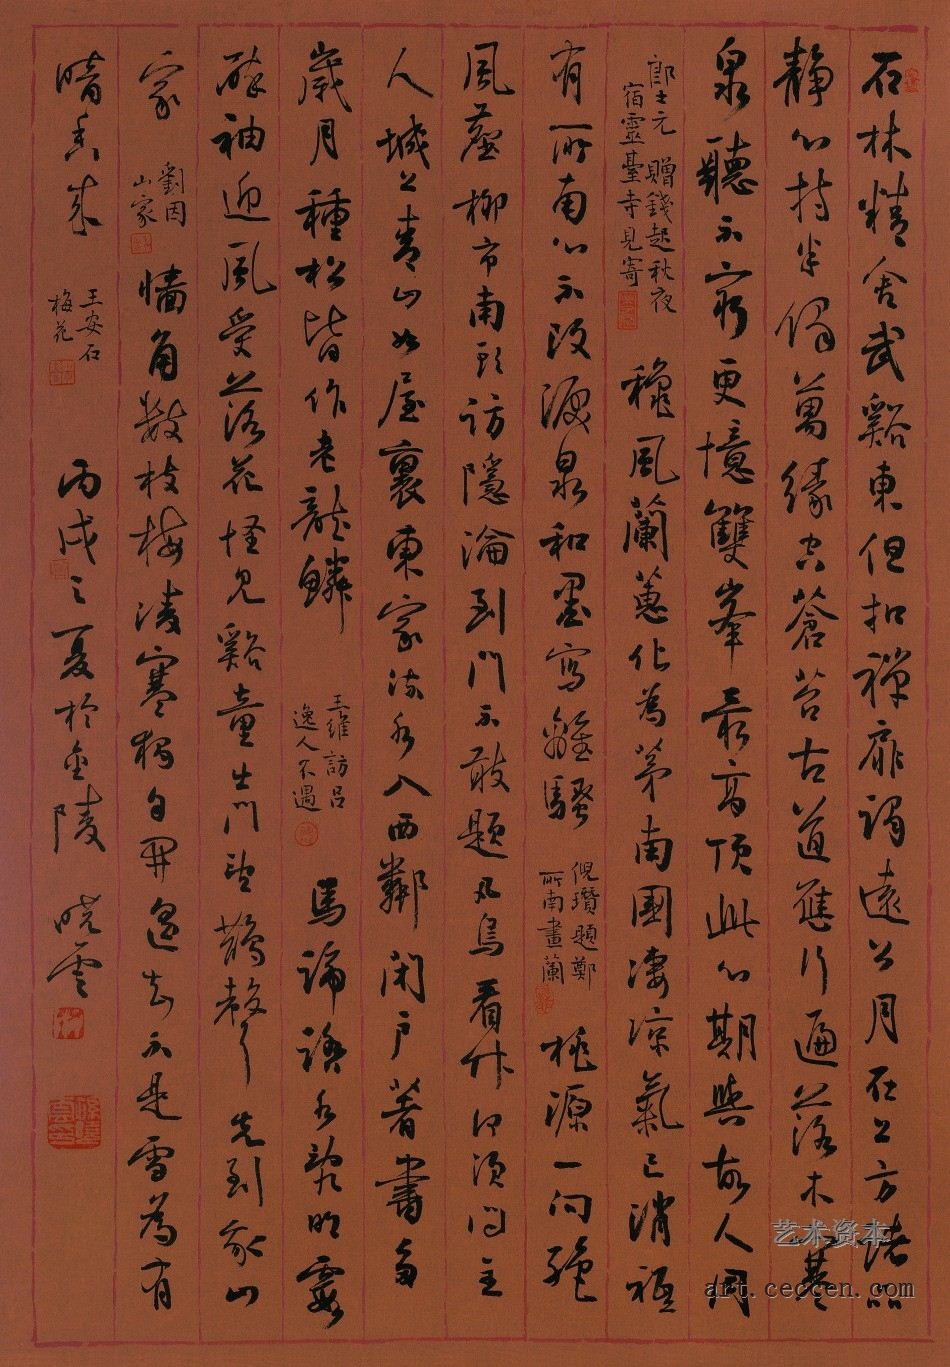 石林精舍武谿東但扣禪扉謁遠公月在上方諸品
靜心持半偈萬緣空蒼苔古道應行遍落木寒
泉聽不窮更憶雙峯最高頂此心期與故人同
郎士元 贈錢起秋夜
宿靈臺寺見寄
穐風蘭蕙化為茅南國凄涼氣已消祗
有所南心不改淚泉和墨寫離騷
倪瓚題鄭
所南畫蘭
桃源一向絕
風塵柳市南頭訪隱淪到門不敢題凡鳥看竹何須問主
人城上青山如屋裏東家流水入西鄰閉戶著書多
歲月種松皆作老龍鱗
王維訪呂
逸人不遇
馬蹄踏水亂明霞
醉袖迎風受落花怪見谿童出門望鵲聲先到我山
家
劉因
山家
墻角數枝梅凌寒獨自開遙知不是雪為有
暗香來
王安石
梅花
丙戌之夏於金陵 曉雲
艺术资本
art.ceccen.com